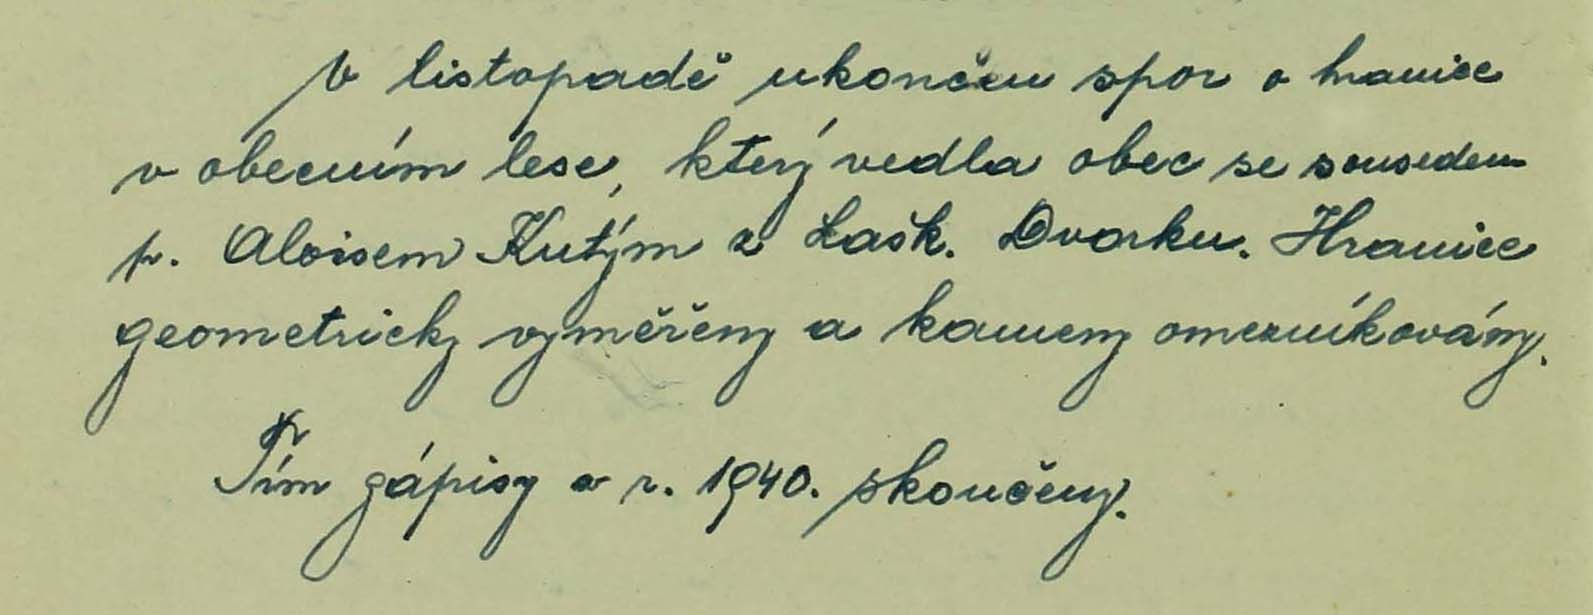 V listopadě ukončen spor o hranice
v obecním lese, který vedla obec se sousedem
p. Aloisem Kutým z Lašk. Dvorku. Hranice
geometricky vyměřeny a kameny omezníkovány.
Tím zápisy v r. 1940. skončeny.